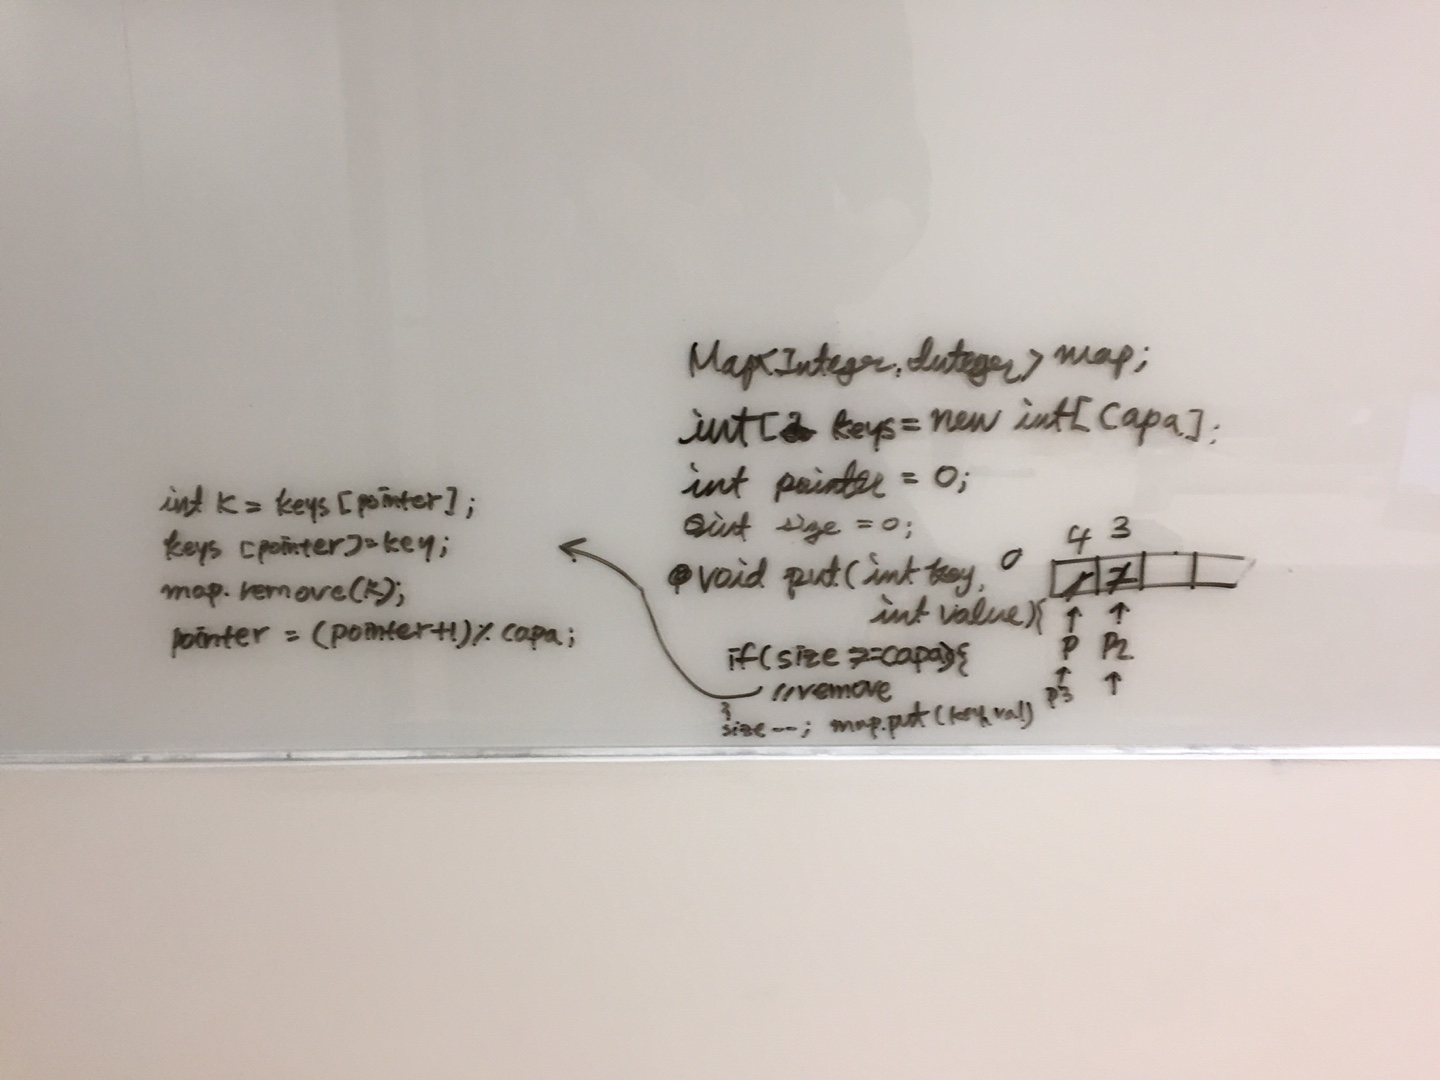 Map<Integer, Integer> map;
int[] keys = new int[capa];
int pointer = 0;
int size = 0;
void put(int key,
int value){
if(size >= capa){
//remove
}
size--; map.put(key, val)
int k = keys[pointer];
keys[pointer]=key;
map.remove(k);
pointer = (pointer+1)% capa;
0
4 3
1 2
P P2
P3